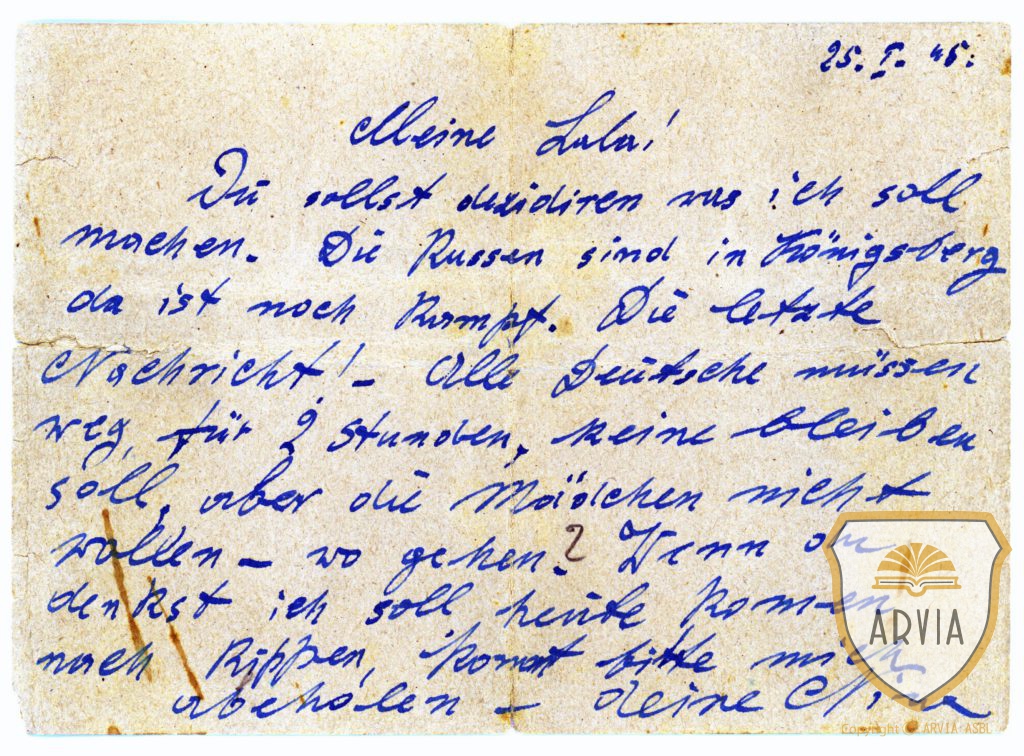 25. I. 45.
Meine Lala!
Du sollst dezidiren was ich soll
machen. Die Russen sind in Königsberg
da ist noch Kampf. Die letzte
Nachricht! – Alle Deutsche müssen
weg, für 2 Stunden, keine bleiben
soll, aber die Mädchen nicht
wollen – wo gehen? Wenn du
denkst ich soll heute komen
nach Rippen, komt bitte mich
abeholen – deine Nina
ARVIA
Copyright © ARVIA ASBL